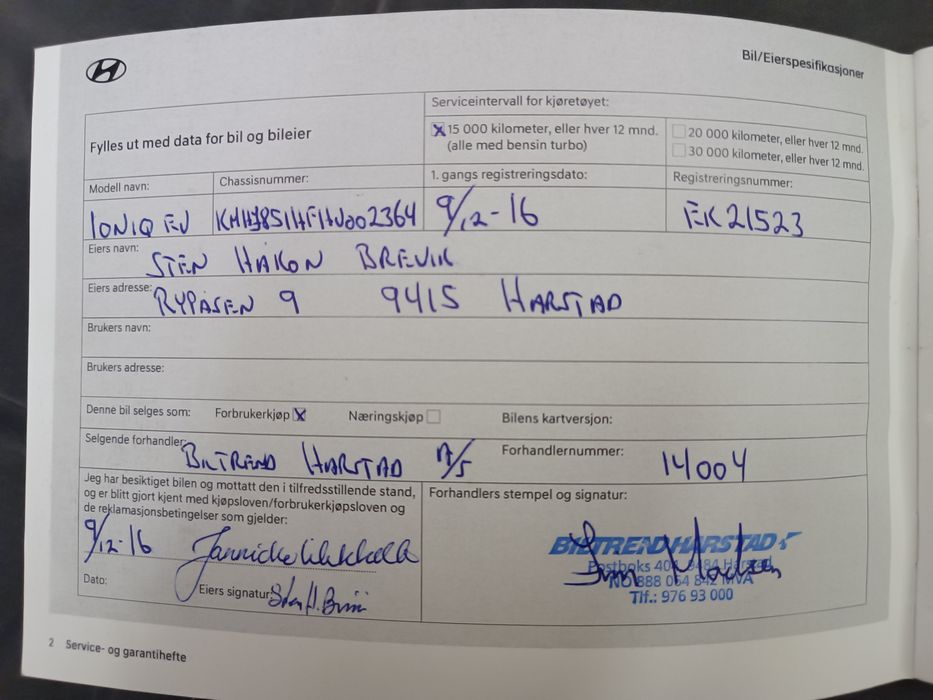 Bil/Eierspesifikasjoner
Fylles ut med data for bil og bileier
Serviceintervall for kjøretøyet:
X 15 000 kilometer, eller hver 12 mnd.
(alle med bensin turbo)
20 000 kilometer, eller hver 12 mnd.
30 000 kilometer, eller hver 12 mnd.
Modell navn:
IONIQ EV
Chassisnummer:
1. gangs registreringsdato:
9/12-16
Registreringsnummer:
EK21523
Eiers navn: STEN HÅKON BREVIK
Eiers adresse: RYPÅSEN 9 9415 HARSTAD
Brukers navn:
Brukers adresse:
Denne bil selges som: Forbrukerkjøp X Næringskjøp Bilens kartversjon:
Selgende forhandler: BILTREND HARSTAD A/S Forhandlernummer: 14004
Jeg har besiktiget bilen og mottatt den i tilfredsstillende stand,
og er blitt gjort kjent med kjøpsloven/forbrukerkjøpsloven og
de reklamasjonsbetingelser som gjelder:
9/12-16 Jannicke
Dato: Eiers signatur: Sten H.
Forhandlers stempel og signatur:
BILTREND HARSTAD
Postboks 9484 Harstad
NO 888 054 842 MVA
Tlf.: 976 93 000
2 Service- og garantihefte